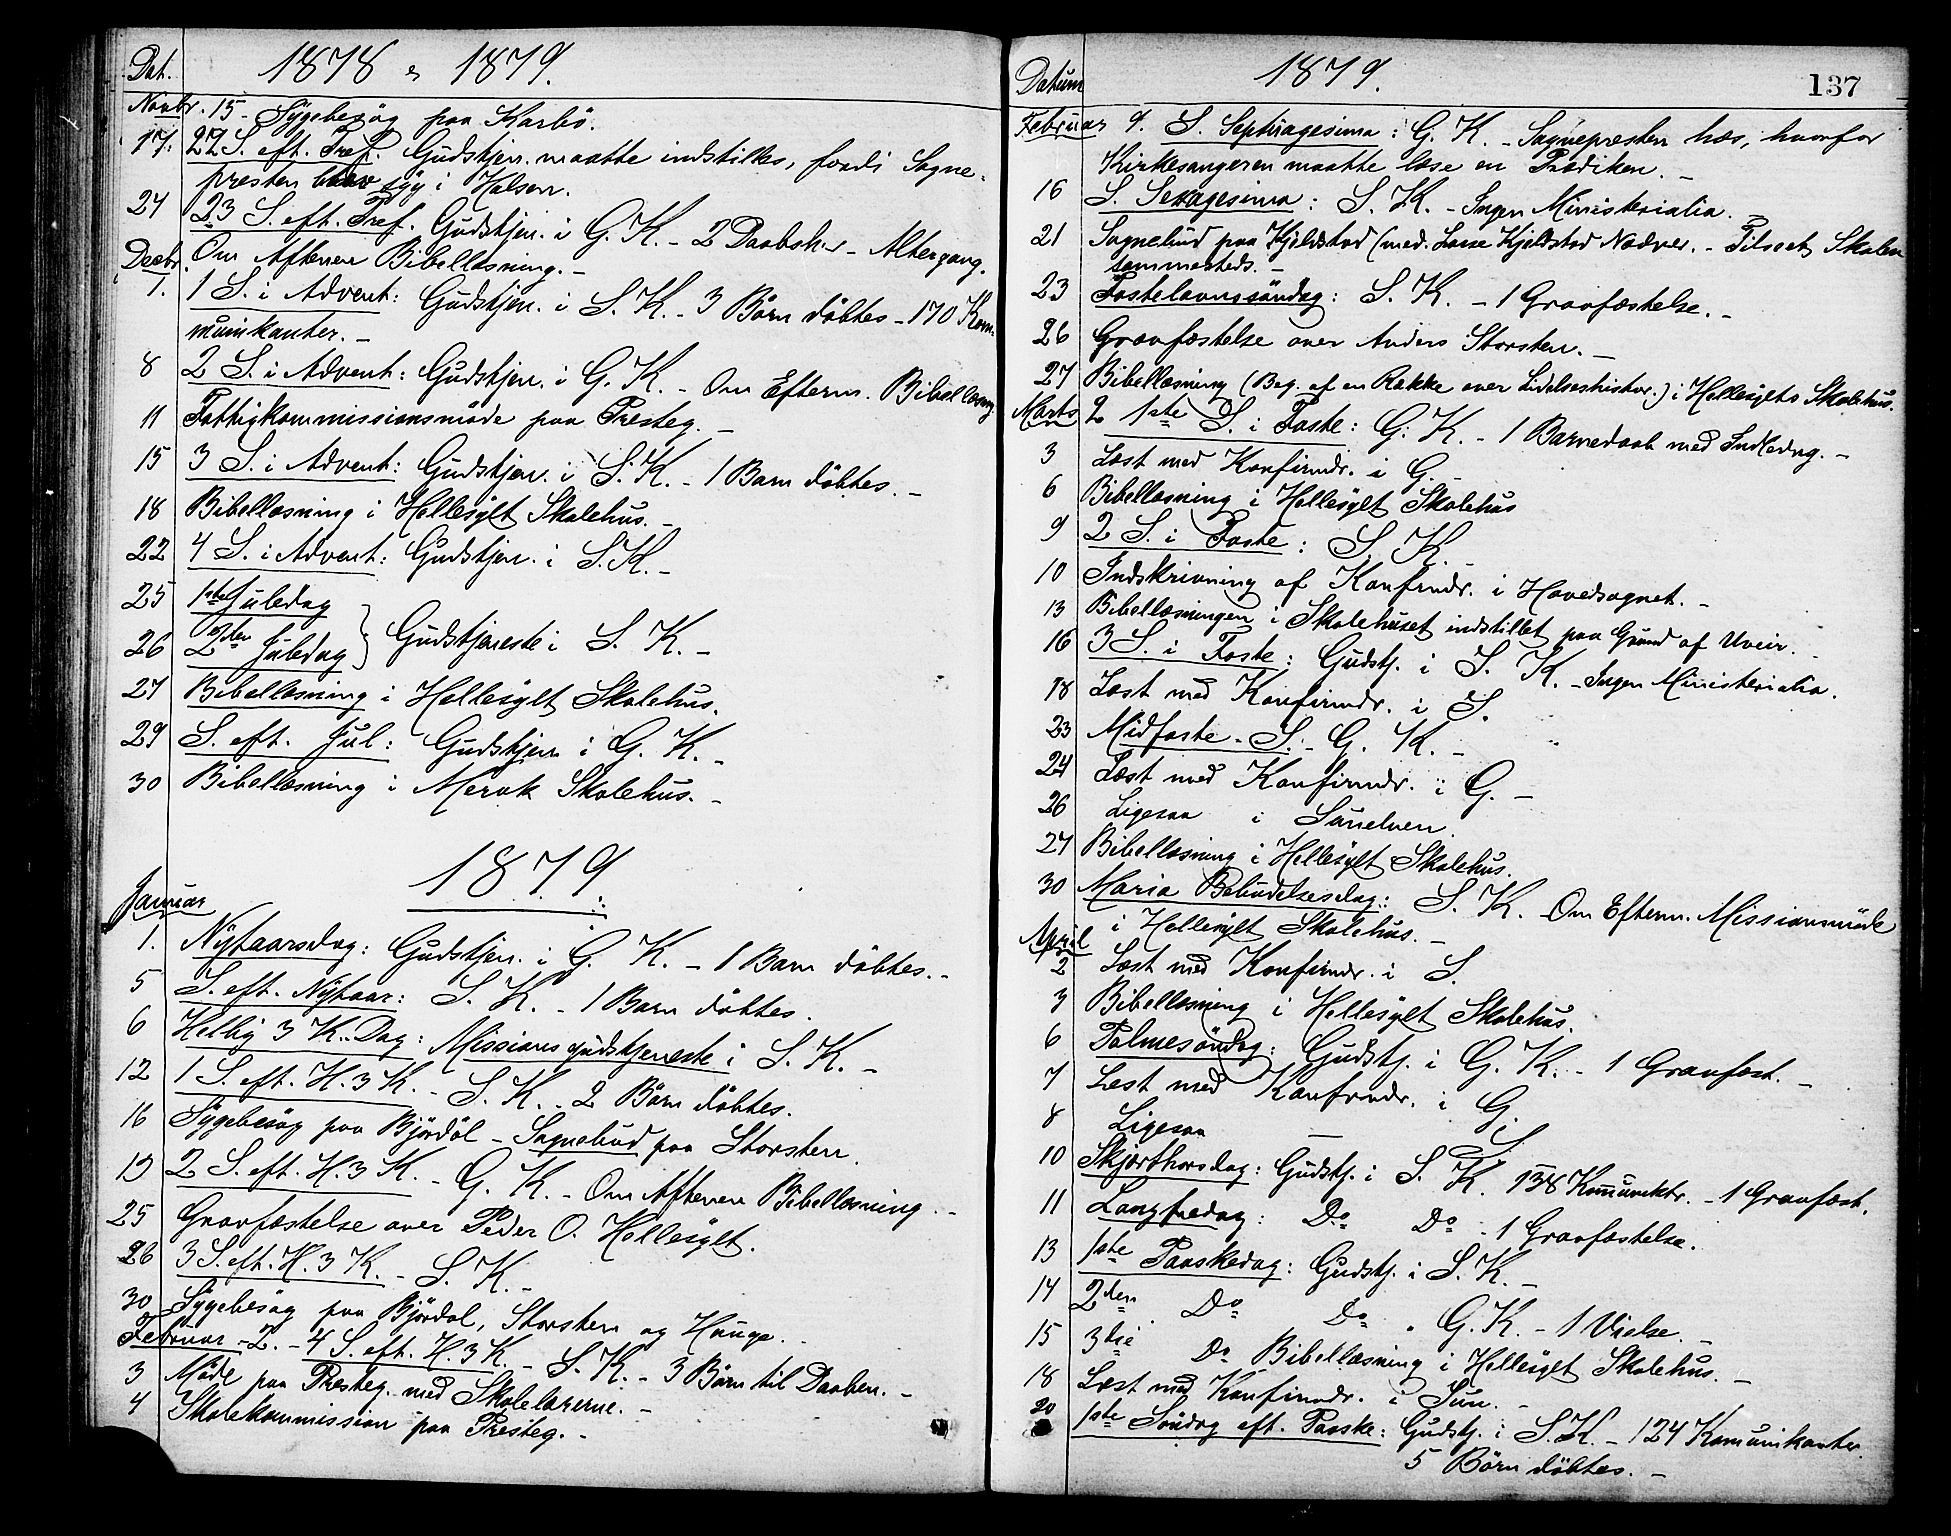 Dat. 1878 og 1879.
Novbr. 15 - Sygebesøg paa Karbö.
17. 22 S. eft. Tref. Gudstjen. maatte indstilles, fordi Sogne-
presten blev syg i Halsen.
24 23 S. eft. Tref. Gudstjen. i G. K. - 2 Daabsb. - Altergang.
Om Aftenen Bibellæsning. -
Decbr.
1. 1 S. i Advent: Gudstjen. i S. K. - 3 Börn döbtes - 170 Kom-
munikanter. -
8 2 S. i Advent: Gudstjen. i G. K. - Om Efterm. Bibellæsng.
11 Fattigkommissionsmöde paa Presteg. -
15 3 S. i Advent: Gudstjen. i S. K. - 1 Barn döbtes. -
18 Bibellæsning i Hellesylt Skolehus. -
22 4 S. i Advent: Gudstjen. i S. K. -
25 1ste Juledag
26 2den Juledag } Gudstjeneste i S. K. -
27 Bibellæsning i Hellesylt Skolehus.
29 S. eft. Jul: Gudstjen i G. K. -
30 Bibellæsning i Merok Skolehus. -
1879
Januar
1. Nytaarsdag: Gudstjen. i G. K. - 1 Barn döbtes. -
5 S. eft. Nytaar: S. K. - 1 Barn döbtes.
6 Hellig 3 K. Dag: Missionsgudstjeneste i S. K. -
12 1 S. eft. H. 3 K. - S. K. - 2 Börn döbtes.
16 Sygebesög paa Björdal - Sognebud paa Storsten.
19 2 S. eft. H. 3 K. - G. K. - Om Aftenen Bibellæsning. -
25 Gravfæstelse over Peder O. Hellesylt.
26 3 S. eft. H. 3 K. - S. K. -
30 Sygebesög paa Björdal, Storsten og Hauge. -
Februar - 2. - 4 S. eft. H. 3 K. - S. K. - 3 Börn til Daaben. -
3 Möde paa Presteg. med Skolelærerne. -
4 Skolekommission paa Presteg. -
Datum 1879. 137
Februar 9. S. Septuagesima: G. K. - Sognepresten hæs, hvorfor
Kirkesangeren maatte læse en Prædiken. -
16 S. Sexagesima: S. K. - Ingen Ministerialia.
21 Sognebud paa Kjeldstad (med Lasse Kjeldstad Nadver. - Tilseet Skolen
sammesteds. -
23 Fastelavnssöndag: S. K. - 1 Gravfæstelse. -
26 Gravfæstelse over Anders Storsten. -
27 Bibellæsning (Beg. af en Række over Lidelseshistor.) i Hellesylts Skolehus.
Marts 2 1ste S. i Faste: G. K. - 1 Barnedaab med Indledng. -
3 Læst med Konfirmdr. i G. -
6 Bibellæsning i Hellesylt Skolehus
9 2 S. i Faste: S. K. -
10 Indskrivning af Konfirmdr. i Hovedsognet. -
13 Bibellæsningen i Skolehuset indstillet paa Grund af Uveir. -
16 3 S. i Faste: Gudstj. i S. K. - Ingen Ministerialia.
18 Læst med Konfirmdr. i S.
23 Midfaste - S. - G. K. -
24 Læst med Konfirmdr. i G. -
26 Ligesaa i Sunelven.
27 Bibellæsning i Hellesylt Skolehus.
30 Maria Bebudelsesdag: S. K. - Om Efterm. Missionsmöde
i Hellesylt Skolehus. -
April
2 Læst med Konfirmdr. i S.
3 Bibellæsning i Hellesylt Skolehus.
6 Palmesöndag: Gudstj. i G. K. - 1 Gravfæst. -
7 Læst med Konfirmdr. i G.
8 Ligesaa — S.
10 Skjærthorsdag: Gudstj. i S. K. 138 Kommuniktr. - 1 Gravfæst.
11 Langfredag: Do Do - 1 Gravfæstelse.
13 1ste Paaskedag: Gudstj. i S. K. -
14 2den Do Do " G. K. - 1 Vielse. -
15 3die Do Bibellæsning i Hellesylt Skolehus. -
18 Læst med Konfirmdr. i Sun. -
20 1ste Söndag eft. Paaske: Gudstj. i S. K. - 124 Kommunikanter
5 Börn döbtes. -